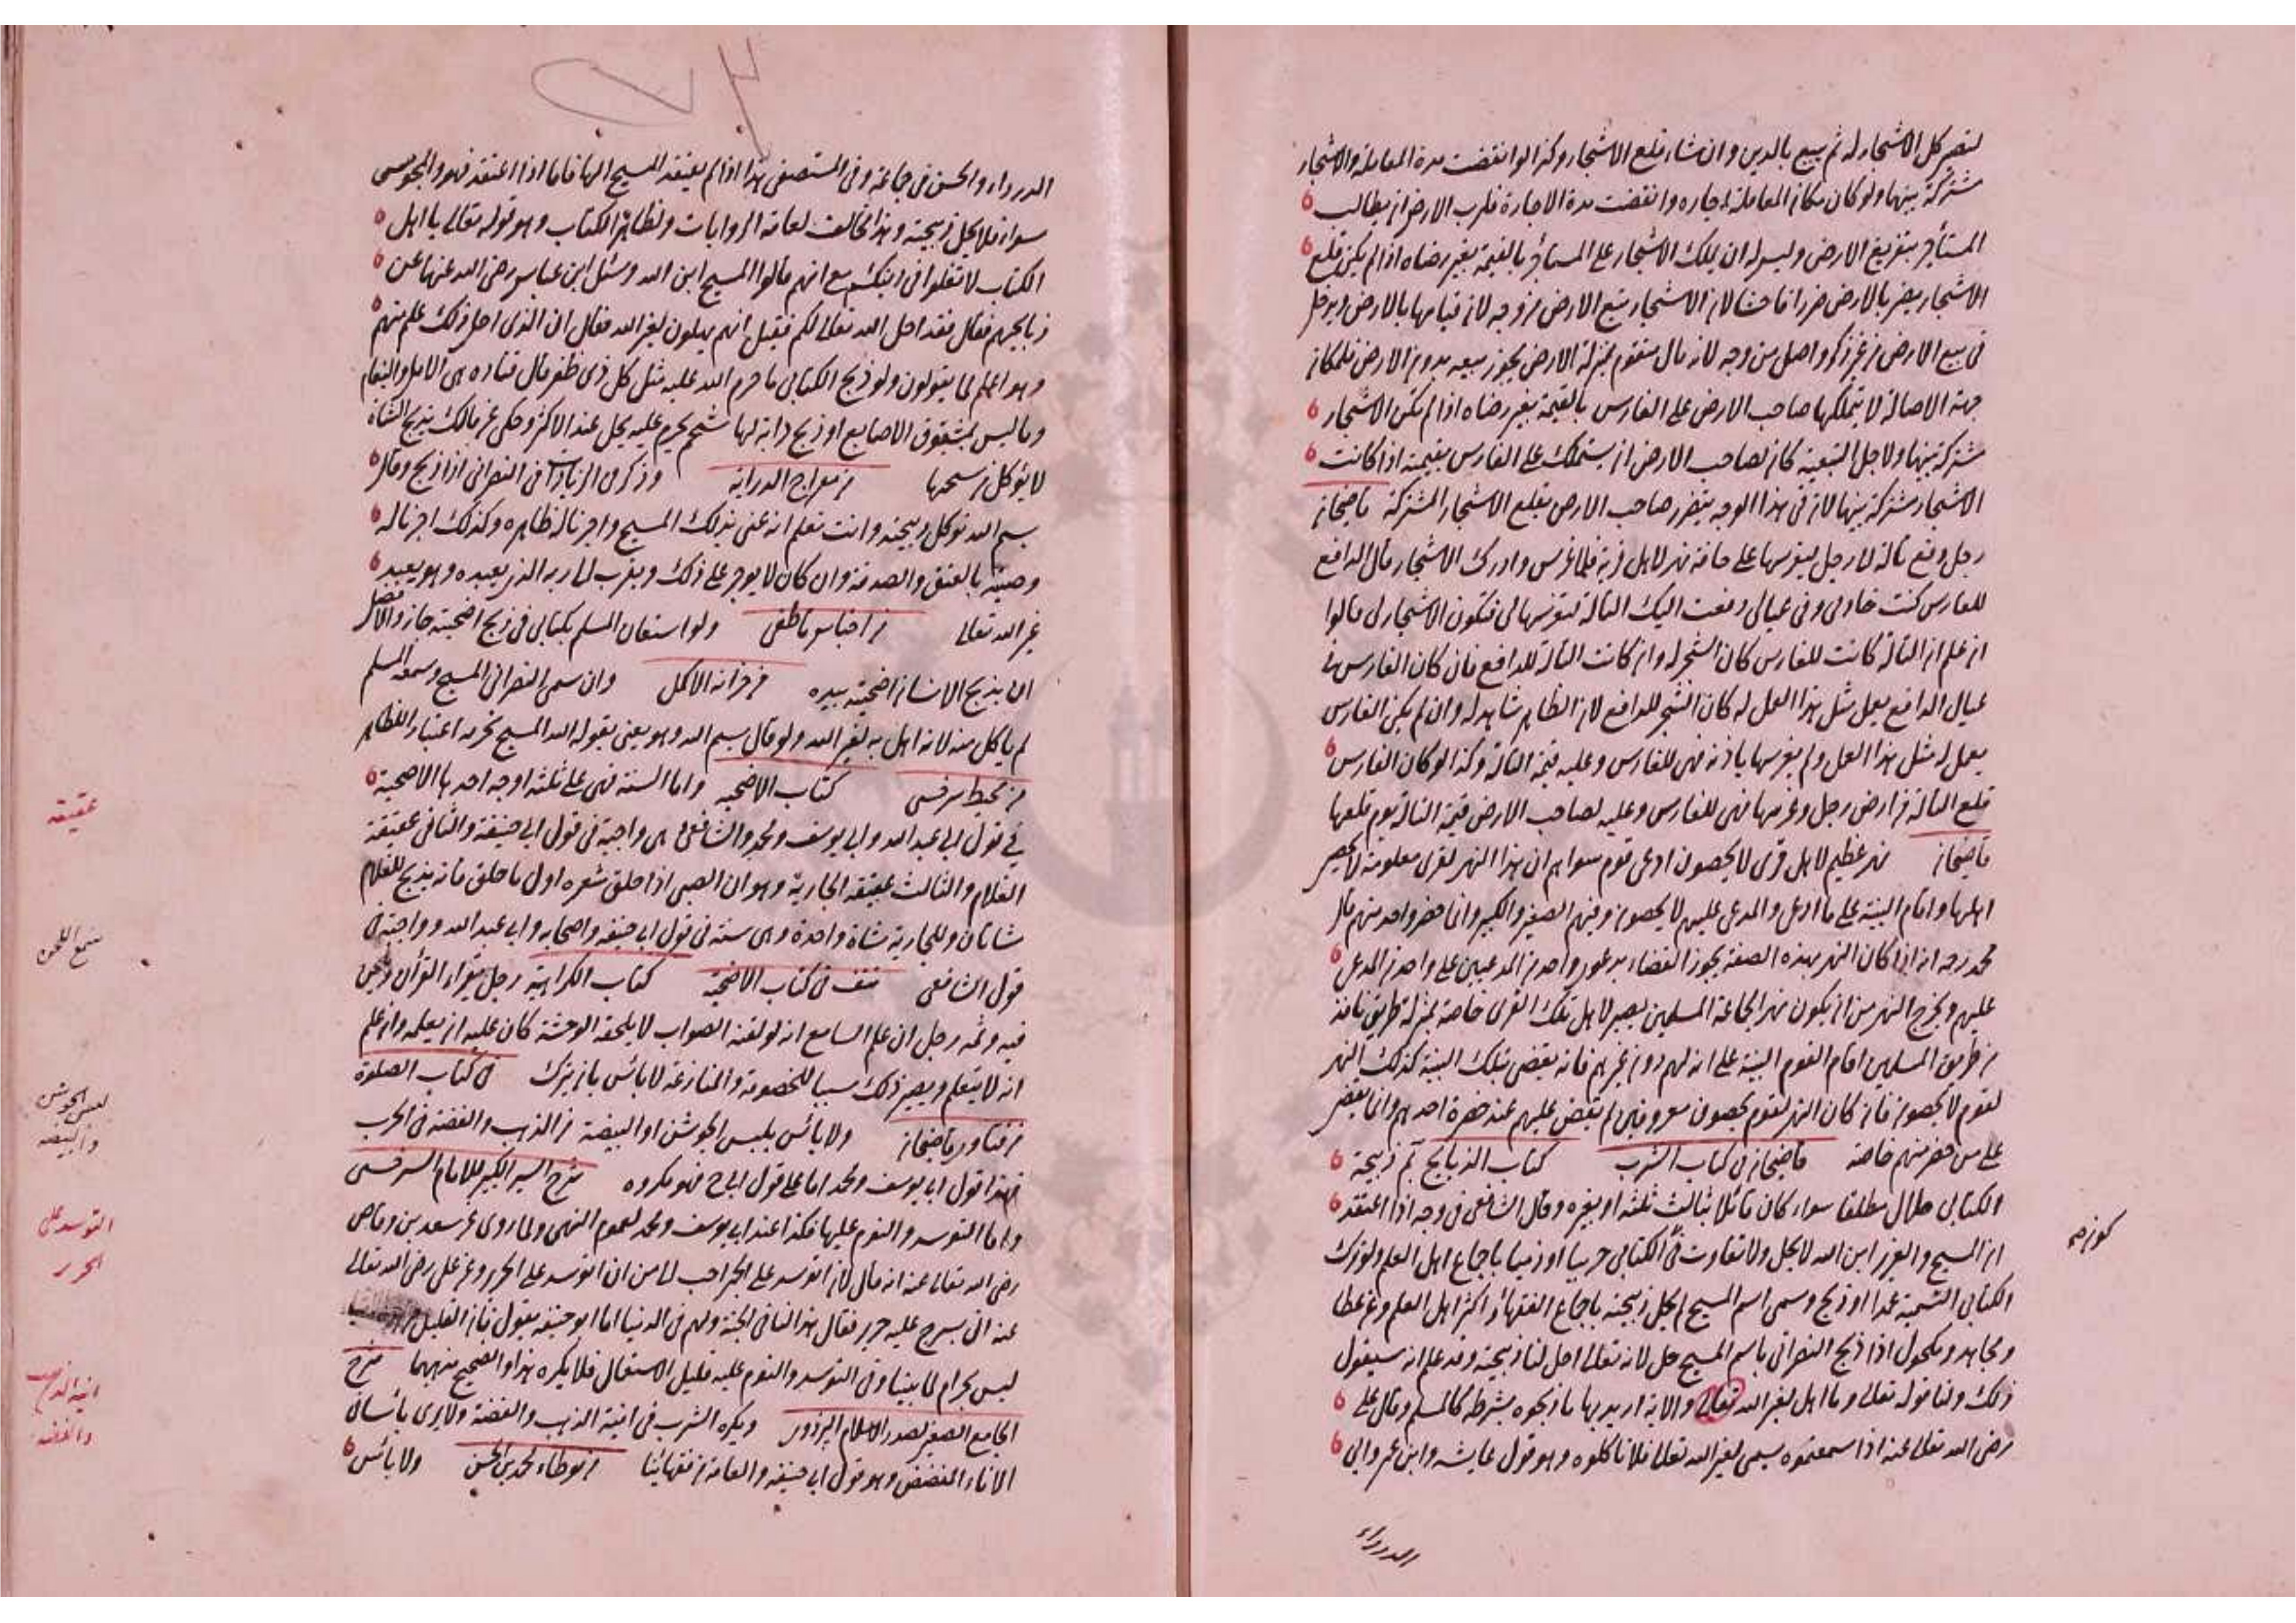 لتصير كل الاشجار له ثم يبيع بالدين وان شاء قلع الاشجار وكذا لو انقضت مدة المعاملة والاشجار
مشتركة بينهما ولو كان مكان المعاملة اجاره وانقضت مدة الاجارة فلرب الارض ان يطالب
المستأجر بتفريغ الارض وليس له ان يملك الاشجار على المستأجر بالقيمة بغير رضاه اذا لم يكن قلع
الاشجار يضر بالارض ضررا فاحشا لان الاشجار تتبع الارض من وجه لان قيامها بالارض ويدخل
فى بيع الارض من غير ذكر واصل من وجه لانه مال متقوم بمنزلة الارض يجوز بيعه بدون الارض فلمكان
جهة الاصالة لا يتملكها صاحب الارض على الغارس بالقيمة بغير رضاه اذا لم تكن الاشجار
مشتركة بينهما ولاجل التبعية كان لصاحب الارض ان يستملك على الغارس بقيمته اذا كانت
الاشجار مشتركة بينهما لان فى هذا الوجه يتضرر صاحب الارض بقلع الاشجار المشتركة قاضيخان
رجل دفع تالة لا رجل ليغرسها على حافة نهر لاهل قرية فلما غرس وادرك الاشجار قال الدافع
للغارس كنت خادمى وفى عيالى دفعت اليك التالة لتغرسها لى فتكون الاشجار لى قالوا
ان علم ان التالة كانت للغارس كان الشجر له وان كانت التالة للدافع فان كان الغارس فى
عيال الدافع يعمل مثل هذا العمل له كان الشجر للدافع لان الظاهر شاهد له وان لم يكن الغارس
يعمل له مثل هذا العمل ولم يغرسها باذنه فهى للغارس وعليه قيمة التالة وكذا لو كان الغارس
قلع التالة من ارض رجل وغرسها فهى للغارس وعليه لصاحب الارض قيمة التالة يوم قلعها
قاضيخان نهر عظيم لاهل قرى لا يحصون ادعى قوم سواهم ان هذا النهر لقرى معلومة لا يحصر
اهلها واقام البينة على ما ادعى والمدعى عليهم لا يحصون وفيهم الصغير والكبير وانما حضر واحد منهم قال
محمد رحه انه اذا كان النهر بهذه الصفة يجوز القضاء بدعوى واحد من المدعيين على واحد من المدعى
عليهم ويخرج النهر من ان يكون نهر الجماعة المسلمين يصير لاهل تلك القرى خاصة بمنزلة طريق نافذ
من طريق المسلمين اقام القوم البينة على انه لهم دون غيرهم فانه يقضى بتلك البينة كذلك النهر
لقوم لا يحصون فان كان النهر لقوم يحصون معروفين لم يقض عليهم عند حضرة احدهم وانما يقضى
على من حضر منهم خاصة قاضيخان فى كتاب الشرب كتاب الذبايح ثم ذبيحة
الكتابى حلال مطلقا سواء كان قائلا بثالث ثلثة او بغيره وقال الشافعى فى وجه اذا اعتقد
ان المسيح والعزير ابن الله لا يحل ولا تفاوت فى الكتابى حربيا او ذميا باجماع اهل العلم ولو ترك
الكتابى التسمية عمدا او ذبح وسمى اسم المسيح لم يحل ذبيحته باجماع الفقهاء واكثر اهل العلم وعن عطا
ومجاهد ومكحول اذا ذبح النصرانى باسم المسيح حل لانه تعالى احل لنا ذبيحته وقد علم انه سيقول
ذلك ولنا قوله تعالى وما اهل لغير الله تعالى والاية اريد بها ما ذبحوه بشرطه كالمسلم وقال على
رضى الله تعالى عنه اذا سمعتموه سمى لغير الله تعالى فلا تاكلوه وهو قول عايشه وابن عمر وابى
الدرداء
الدرداء والحسن فى جماعة وفى المستصفى هذا اذا لم يعتقد المسيح الها فاما اذا اعتقد فهو والمجوسى
سواء فلا يحل ذبيحته وهذا مخالف لعامة الروايات ولظاهر الكتاب وهو قوله تعالى يا اهل
الكتاب لا تغلوا فى دينكم مع انهم قالوا المسيح ابن الله وسئل ابن عباس رضى الله عنهما عن
ذبايحهم فقال فقد احل الله تعالى لكم فقيل انهم يهلون لغير الله فقال ان الذى احل ذلك علم منهم
وهو اعلم لما يقولون ولو ذبح الكتابى ما حرم الله عليه مثل كل ذى ظفر قال قتاده هى الابل والنعام
وما ليس بمشقوق الاصابع او ذبح دابة لها شحم يحرم عليه يحل عند الاكثر وحكى عن مالك يذبح الشاة
لا يؤكل من شحمها من معراج الدراية وذكر فى الزيادات فى النصرانى اذا ذبح وقال
بسم الله توكل ذبيحته وانت تعلم انه عنى بذلك المسيح واجرنا له ظاهره وكذلك اجرنا له
وصيته بالعتق والصدقة وان كان لا يوجر على ذلك ويقرب لما ربه الذى يعبده وهو يعبد
غير الله تعالى من اجناس ناطفى ولو استعان المسلم بكتابى فى ذبح اضحيته جاز والافضل
ان يذبح الانسان اضحيته بيده من خزانة الاكمل وان سمى النصرانى المسيح وسمعه المسلم
لم ياكل منه لانه اهل به لغير الله ولو قال بسم الله وهو يعنى بقوله الله المسيح تحريه اعتبار الظاهر
من محيط سرخسى كتاب الاضحيه واما السنة فهى على ثلثة اوجه احدها الاضحية
فى قول ابى عبد الله وابى يوسف ومحمد والشافعى هى واجبة فى قول ابى حنيفة والثانى عقيقة
الغلام والثالث عقيقة الجارية وهو ان الصبى اذا حلق شعره اول ما حلق فانه يذبح للغلام
شاتان وللجارية شاة واحدة وهى سنة فى قول ابى حنيفه واصحابه وابى عبد الله وواجبة فى
قول الشافعى نتف فى كتاب الاضحية كتاب الكراهية رجل يقراء القرأن ولحن
فيه وثمه رجل ان علم السامع انه لو لقنه الصواب لا يلحقه الوحشة كان عليه ان يعلمه وان علم
انه لا يتعلم ويصير ذلك سببا للخصومة والمنازعة لا بائس بان يترك فى كتاب الصلوة
من فتاوى قاضيخان ولا بائس بلبس الجوشن او البيضة من الذهب والفضة فى الحرب
فهذا قول ابى يوسف ومحمد اما على قول ابى ح فهو مكروه شرح السير الكبير للامام السرخسى
واما التوسد والنوم عليها فكذا عند ابى يوسف ومحمد لعموم النهى ولما روى عن سعد بن وقاص
رضى الله تعالى عنه انه قال لان اتوسد على الجمر احب لى من ان اتوسد على الحرير وعن على رضى الله تعالى
عنه اتى بسرج عليه حرير فقال هذا لنا فى الجنة ولهم فى الدنيا اما ابو حنيفه يقول بان القليل من
ليس بحرام لما بينا وفى التوسد والنوم عليه قليل الاستعمال فلا يكره هذا والصحيح منهما شرح
الجامع الصغير لصدر الاسلام البزدوى ويكره الشرب فى انية الذهب والفضة ولا يرى باسا فى
الاناء المفضض وهو قول ابى حنيفه والعامة من فقهائنا من موطاء محمد بن الحسن ولا بائس
عقيقه
سمع اللحن
لبس الجوشن
والبيضه
التوسد على
الحرير
انية الذهب
والفضه